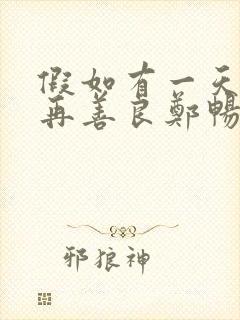 假如有一天
再善良鄭暢
邪狼神